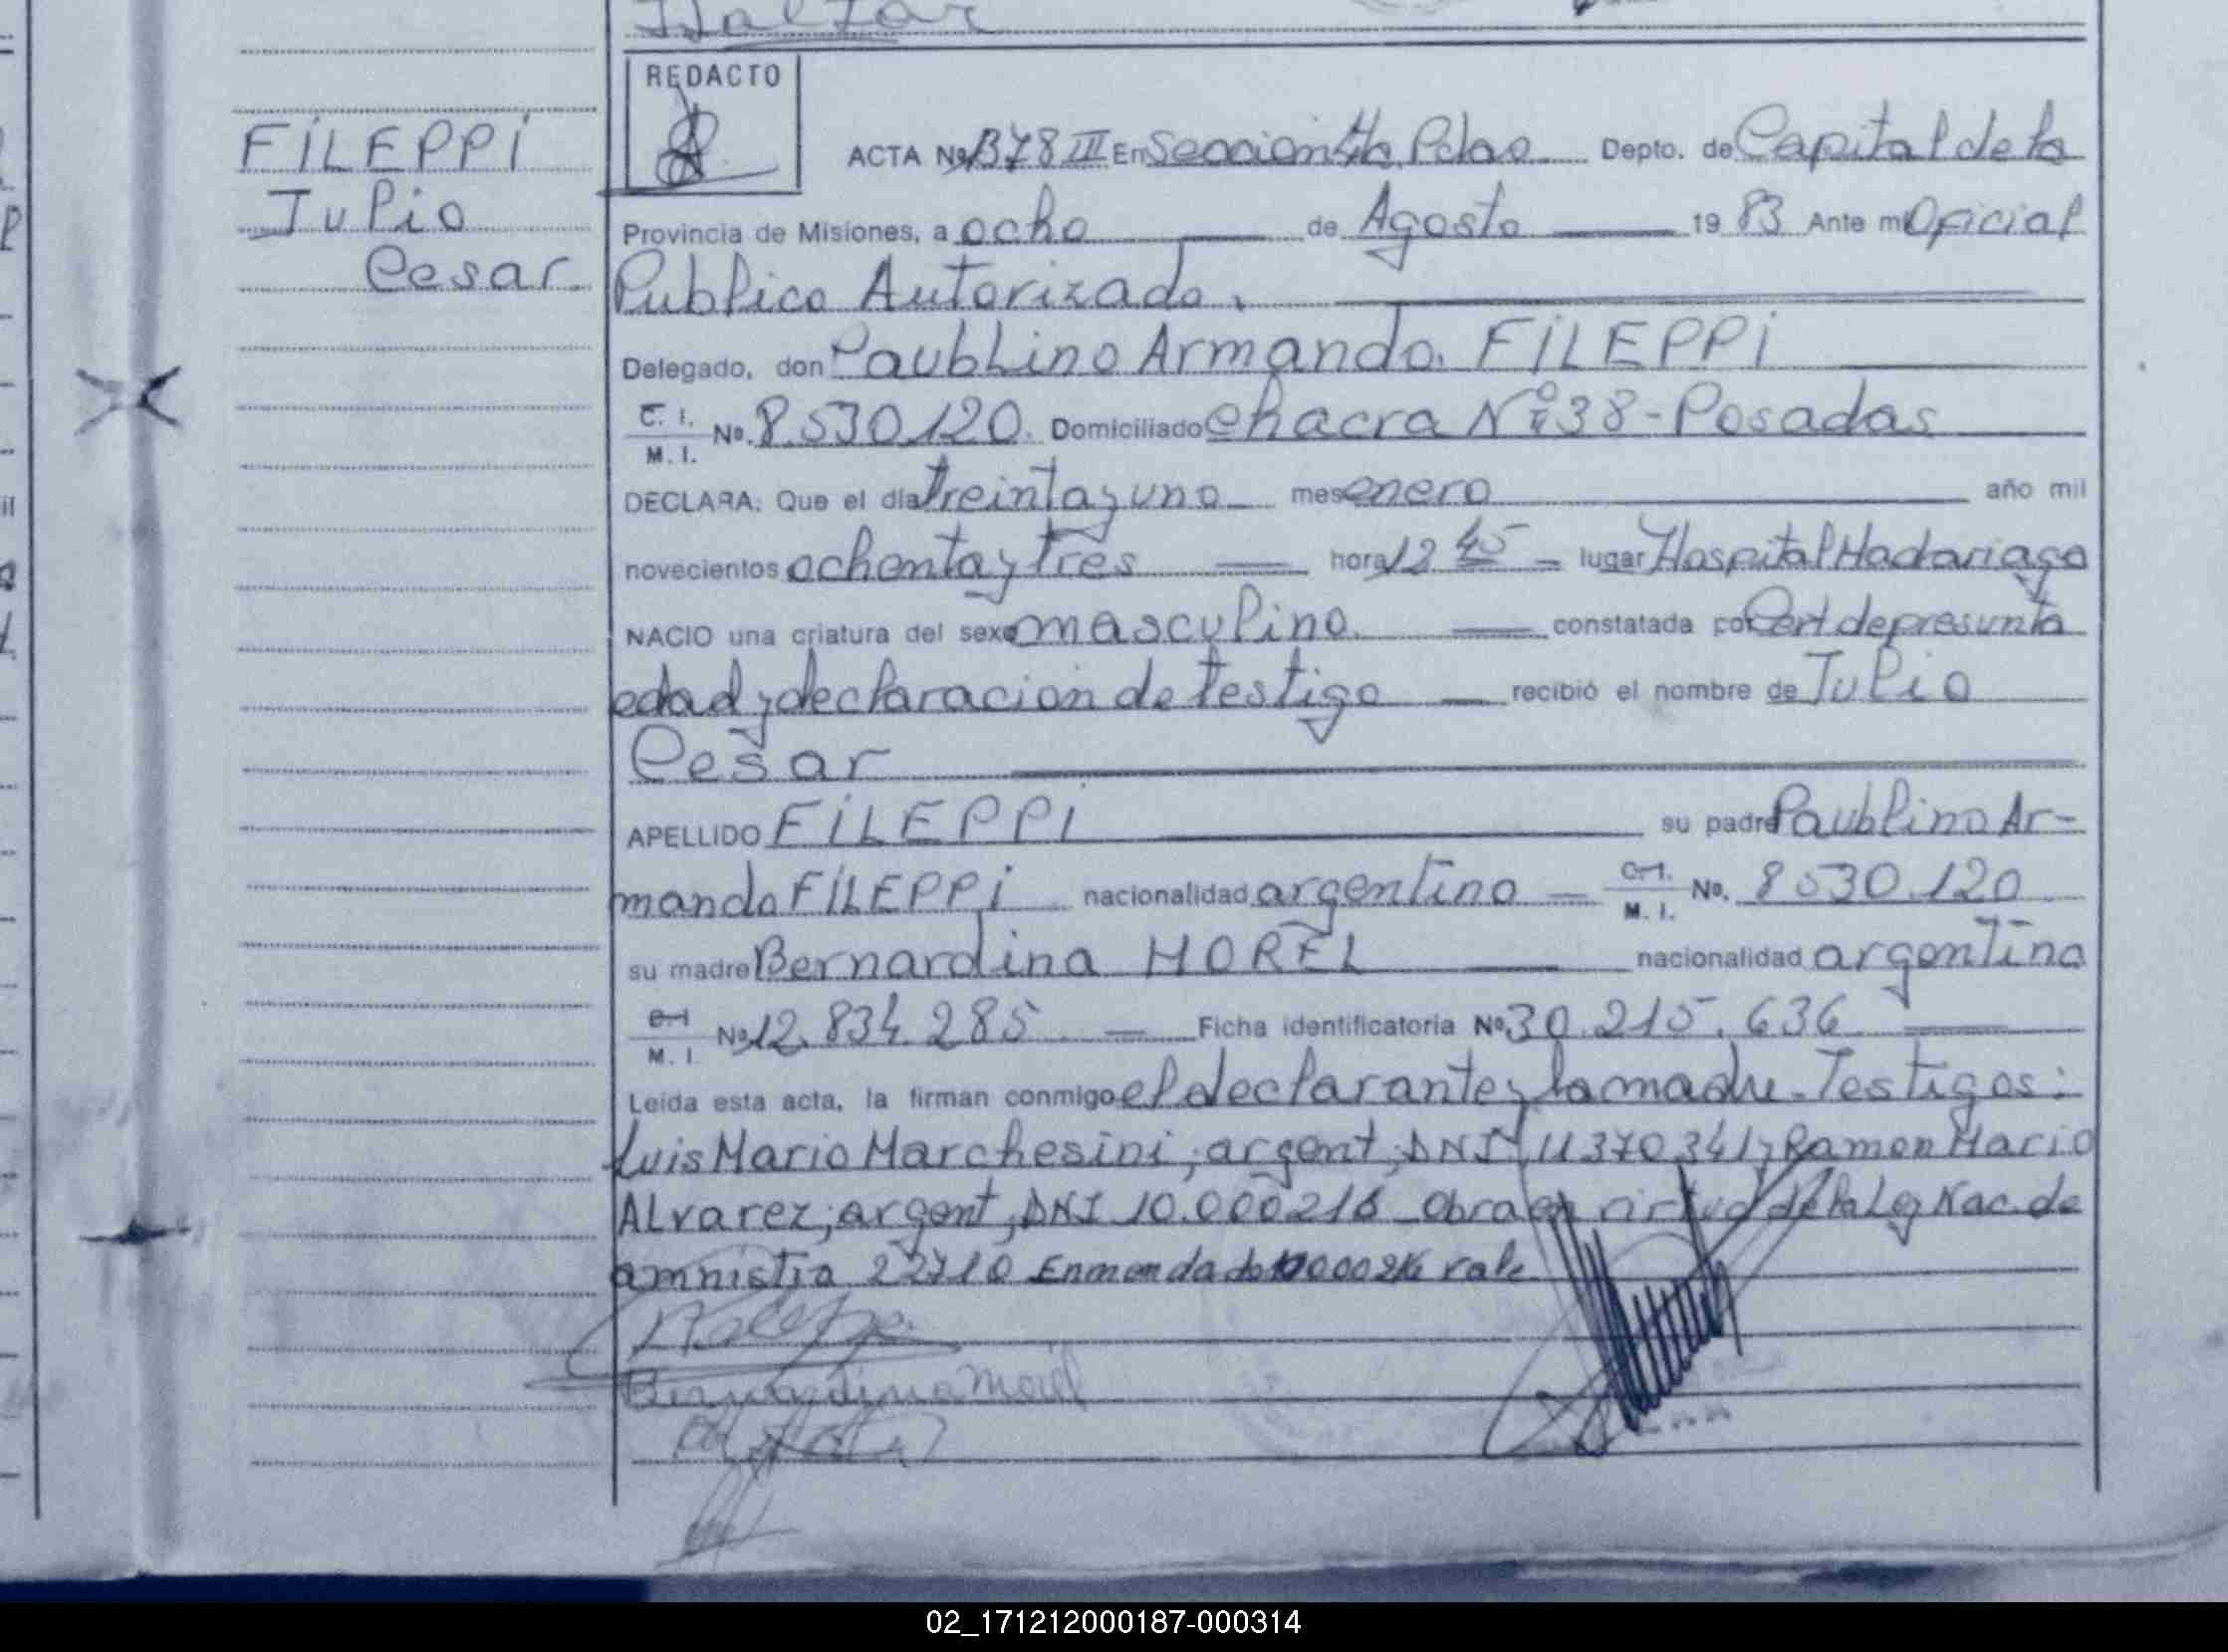 REDACTO
FILEPPI
Julio
Cesar.
ACTA No 1378 III En Seccion 4ta Pdas Depto. de Capital de la
Provincia de Misiones, a ocho de Agosto 19 83 Ante mi Oficial
Publico Autorizado.
Delegado, don Paublino Armando. FILEPPI
C. I.
M. I. No. 8.530.120. Domiciliado Chacra Nº 38 - Posadas
DECLARA: Que el día treinta y uno mes enero año mil
novecientos ochenta y tres hora 12 45 lugar Hospital Madariaga
NACIO una criatura del sexo masculino. constatada por Cert de presunta
edad y declaracion de testigo recibió el nombre de Julio
Cesar
APELLIDO FILEPPI su padre Paublino Ar-
mando FILEPPI nacionalidad argentino C. I.
M. I. No. 8530.120
su madre Bernardina MOREL nacionalidad argentina
C. I
M. I. No 12.834.285 Ficha identificatoria No 30.215.636
Leída esta acta, la firman conmigo el declarante y la madre - Testigos:
Luis Mario Marchesini, argent, DNI 11370341 y Ramon Mario
Alvarez, argent, DNI 10.000216 - Obra en virtud de la Ley Nac. de
amnistia 22710 Enmendado 10000216 vale
Bernardina Morel
02_171212000187-000314